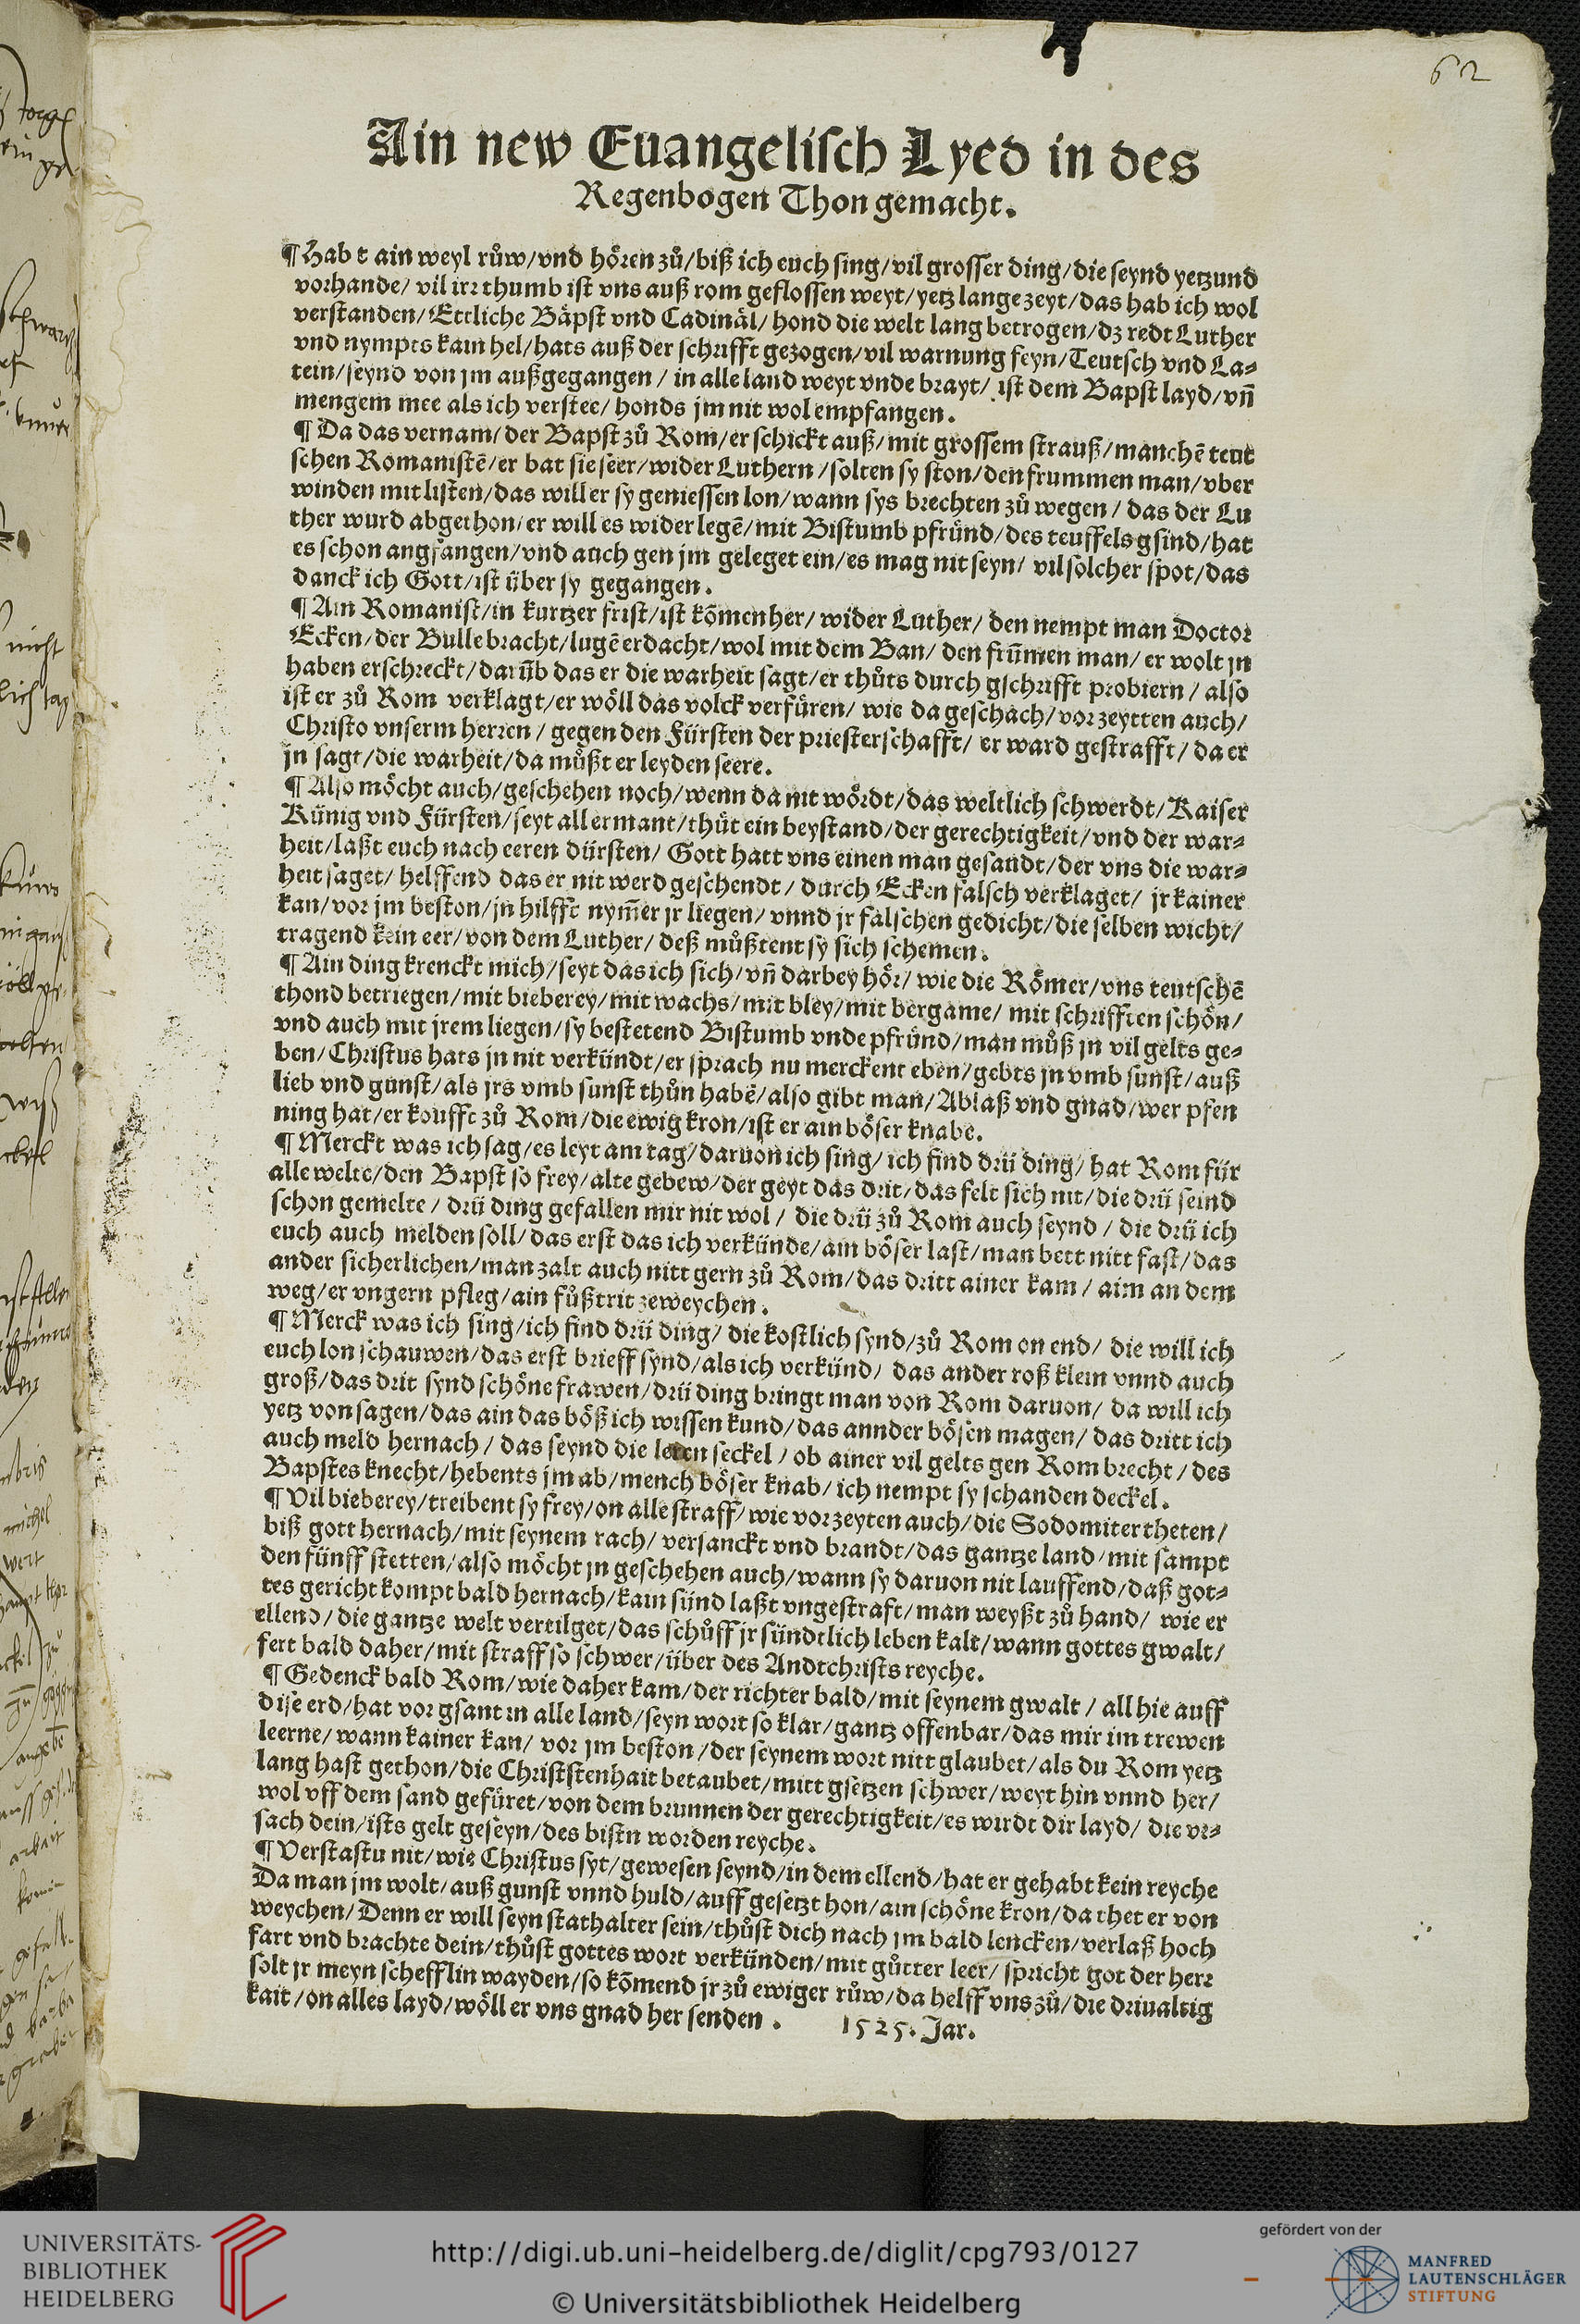 62
Ain new Euangelisch Lyed in des
Regenbogen Thon gemacht.
¶ Hab t ain weyl růw/vnd hören zů/biß ich euch sing/vil grosser ding/die seynd yetzund
vorhande/ vil irr thumb ist vns auß rom geflossen weyt/yetz lange zeyt/das hab ich wol
verstanden/Ettliche Bäpst vnd Cadinäl/hond die welt lang betrogen/dz redt Luther
vnd nympts kain hel/hats auß der schrifft gezogen/vil warnung feyn/Teutsch vnd La⸗
tein/seynd von jm außgegangen/ in alle land weyt vnde brayt/ ist dem Bapst layd/vn̄
mengem mee als ich verstee/honds jm nit wol empfangen.
¶ Da das vernam/der Bapst zů Rom/er schickt auß/mit grossem strauß/manchē teut
schen Romanistē/er bat sie seer/wider Luthern/solten sy ston/den frummen man/vber
winden mit listen/das will er sy geniessen lon/wann sys brechten zů wegen/ das der Lu
ther wurd abgethon/er will es wider legē/mit Bistumb pfründ/des teuffels gsind/hat
es schon angfangen/vnd auch gen jm geleget ein/es mag nit seyn/ vil solcher spot/das
danck ich Gott/ist über sy gegangen.
¶ Ain Romanist/in kurtzer frist/ist kōmen her/ wider Luther/ den nempt man Doctor
Ecken/der Bulle bracht/lugē erdacht/wol mit dem Ban/ den frūmen man/ er wolt jn
haben erschreckt/darūb das er die warheit sagt/er thůts durch gschrifft probiern/ also
ist er zů Rom verklagt/er wöll das volck verfüren/ wie da geschach/vor zeytten auch/
Christo vnserm herren/ gegen den Fürsten der priesterschafft/ er ward gestrafft/ da er
jn sagt/die warheit/da můßt er leyden seere.
¶ Also möcht auch/geschehen noch/wenn da nit wördt/das weltlich schwerdt/Kaiser
Künig vnd Fürsten/seyt all ermant/thüt ein beystand/der gerechtigkeit/vnd der war⸗
heit/laßt euch nach eeren dürsten/ Gott hatt vns einen man gesandt/der vns die war⸗
heit saget/ helffend das er nit werd geschendt/ durch Ecken falsch verklaget/ jr kainer
kan/vor jm beston/jn hilfft nym̄er jr liegen/ vnnd jr falschen gedicht/die selben wicht/
tragend kein eer/von dem Luther/ deß můßtent sy sich schemen.
¶ Ain ding krenckt mich/seyt das ich sich/vn̄ darbey hör/ wie die Römer/vns teutschē
thond betriegen/mit bieberey/mit wachs/mit bley/mit bergame/ mit schrifften schön/
vnd auch mit jrem liegen/sy bestetend Bistumb vnde pfründ/man můß jn vil gelts ge⸗
ben/Christus hats jn nit verkündt/er sprach nu merckent eben/gebts jn vmb sunst/auß
lieb vnd gunst/als jrs vmb sunst thůn habē/also gibt man/Ablaß vnd gnad/wer pfen
ning hat/er koufft zů Rom/die ewig kron/ist er ain böser knabe.
¶ Merckt was ich sag/es leyt am tag/daruon ich sing/ ich find drü ding/ hat Rom für
alle welte/den Bapst so frey/alte gebew/der geyt das drit/das felt sich nit/die drü seind
schon gemelte/ drü ding gefallen mir nit wol/ die drü zů Rom auch seynd/ die drü ich
euch auch melden soll/das erst das ich verkünde/ain böser last/man bett nitt fast/das
ander sicherlichen/man zalt auch nitt gern zů Rom/das dritt ainer kam/ aim an dem
weg/er vngern pfleg/ain fůßtrit zeweychen.
¶ Merck was ich sing/ich find drü ding/ die kostlich synd/zů Rom on end/ die will ich
euch lon schauwen/das erst brieff synd/als ich verkünd/ das ander roß klein vnnd auch
groß/das drit synd schöne frawen/drü ding bringt man von Rom daruon/ da will ich
yetz von sagen/das ain das böß ich wissen kund/das annder bösen magen/ das dritt ich
auch meld hernach/ das seynd die leren seckel/ ob ainer vil gelts gen Rom brecht/ des
Bapstes knecht/hebents jm ab/mench böser knab/ ich nempt sy schanden deckel.
¶ Vil bieberey/treibent sy frey/on alle straff/wie vor zeyten auch/die Sodomiter theten/
biß gott hernach/mit seynem rach/ versanckt vnd brandt/das gantze land/mit sampt
den fünff stetten/also möcht jn geschehen auch/wann sy daruon nit lauffend/daß got⸗
tes gericht kompt bald hernach/kain sünd laßt vngestraft/man weyßt zů hand/ wie er
ellend/die gantze welt vertilget/das schůff jr sündtlich leben kalt/wann gottes gwalt/
fert bald daher/mit straff so schwer/über des Andtchrists reyche.
¶ Gedenck bald Rom/wie daher kam/der richter bald/mit seynem gwalt/ all hie auff
dise erd/hat vor gsant in alle land/seyn wort so klar/gantz offenbar/das mir im trewen
leerne/wann kainer kan/ vor jm beston/der seynem wort nitt glaubet/als du Rom yetz
lang hast gethon/die Christstenhait betaubet/mitt gsetzen schwer/weyt hin vnnd her/
wol vff dem sand gefüret/von dem brunnen der gerechtigkeit/es wirdt dir layd/ die vr⸗
sach dein/ists gelt geseyn/des bistn worden reyche.
¶ Verstastu nit/wie Christus syt/gewesen seynd/in dem ellend/hat er gehabt kein reyche
Da man jm wolt/auß gunst vnnd huld/auff gesetzt hon/ain schöne kron/da thet er von
weychen/Denn er will seyn stathalter sein/thůst dich nach jm bald lencken/verlaß hoch
fart vnd brachte dein/thůst gottes wort verkünden/mit gůtter leer/ spricht got der herr
solt jr meyn schefflin wayden/so kōmend jr zů ewiger růw/da helff vns zů/die driualtig
kait/on alles layd/wöll er vns gnad her senden. 1525. Jar.
UNIVERSITÄTS-
BIBLIOTHEK
HEIDELBERG
http://digi.ub.uni-heidelberg.de/diglit/cpg793/0127
© Universitätsbibliothek Heidelberg
gefördert von der
MANFRED
LAUTENSCHLÄGER
STIFTUNG